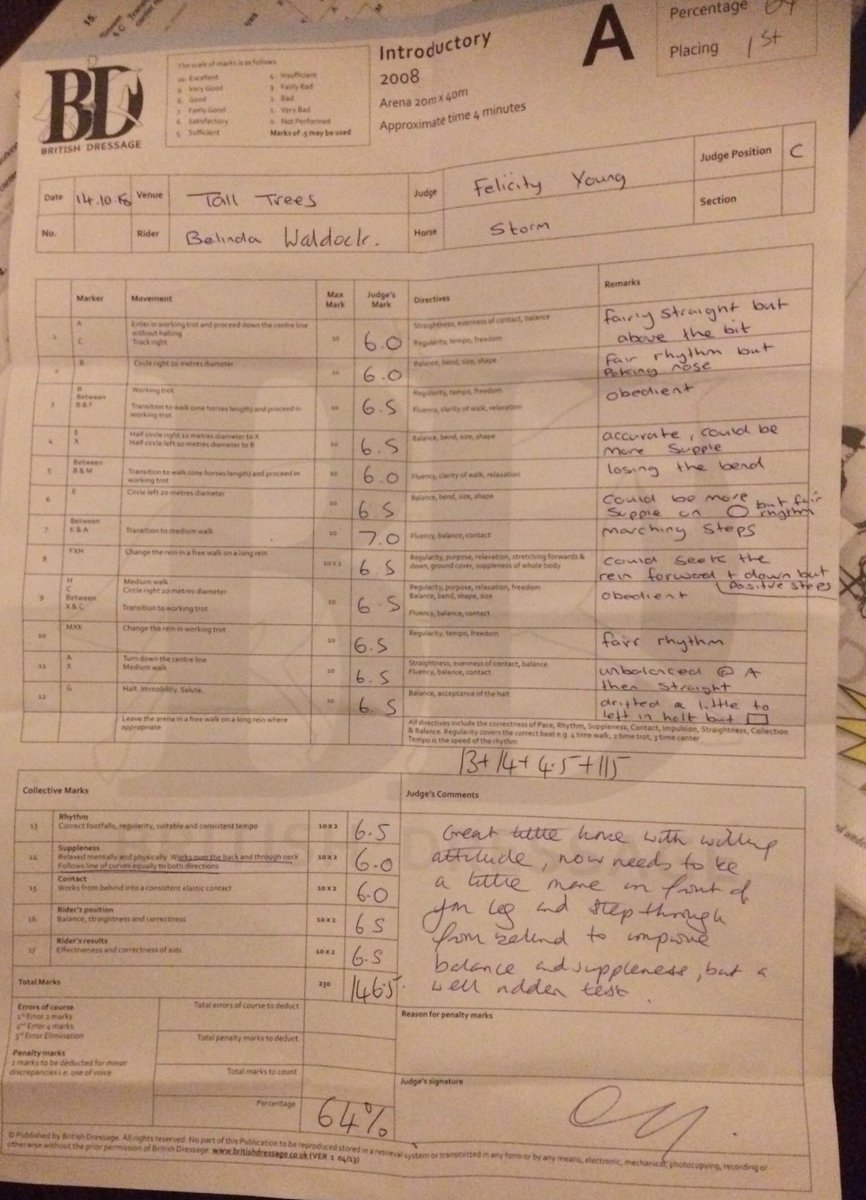 Percentage 64
Placing 1st
A
Introductory
2008
Arena 20m x 40m
Approximate time 4 minutes
BD
BRITISH DRESSAGE
The scale of marks is as follows
10. Excellent 4. Insufficient
9. Very Good 3. Fairly Bad
8. Good 2. Bad
7. Fairly Good 1. Very Bad
6. Satisfactory 0. Not Performed
5. Sufficient Marks of .5 may be used
Date 14.10 Venue Tall Trees Judge Felicity Young Judge Position C
No. Rider Belinda Waldock. Horse Storm Section
Marker Movement Max Mark Judge's Mark Directives Remarks
1 A Enter in working trot and proceed down the centre line without halting
C Track right 10 6.0 Straightness, evenness of contact, balance
Regularity, tempo, freedom
fairly straight but
above the bit
2 B Circle right 20 metres diameter 10 6.0 Balance, bend, size, shape
fair rhythm but
Poking nose
3 B Working trot
Between B & F Transition to walk (one horses length) and proceed in working trot 10 6.5 Regularity, tempo, freedom
Fluency, clarity of walk, relaxation
obedient
4 E Half circle right 10 metres diameter to X
X Half circle left 10 metres diameter to B 10 6.5 Balance, bend, size, shape
accurate, could be
more supple
5 Between B & M Transition to walk (one horses length) and proceed in working trot 10 6.0 Fluency, clarity of walk, relaxation
losing the bend
6 E Circle left 20 metres diameter 10 6.5 Balance, bend, size, shape
could be more
supple on but fair
rhythm
7 Between K & A Transition to medium walk 10 7.0 Fluency, balance, contact
marching steps
8 FXH Change the rein in a free walk on a long rein 10 x 2 6.5 Regularity, purpose, relaxation, stretching forwards & down, ground cover, suppleness of whole body
could seek the
rein forward + down but
positive steps
9 H Medium walk
C Circle right 20 metres diameter
Between X & C Transition to working trot 10 6.5 Regularity, purpose, relaxation, freedom
Balance, bend, shape, size
Fluency, balance, contact
obedient
10 MXK Change the rein in working trot 10 6.5 Regularity, tempo, freedom
fair rhythm
11 A Turn down the centre line
X Medium walk 10 6.5 Straightness, evenness of contact, balance
Fluency, balance, contact
unbalanced @ A
then straight
12 G Halt. Immobility. Salute. 10 6.5 Balance, acceptance of the halt
drifted a little to
left in halt but
Leave the arena in a free walk on a long rein where appropriate
All directives include the correctness of Pace, Rhythm, Suppleness, Contact, Impulsion, Straightness, Collection
& Balance. Regularity covers the correct beat e.g. 4 time walk, 2 time trot, 3 time canter
Tempo is the speed of the rhythm
13+14+4.5+115
Collective Marks
Judge's Comments
13 Rhythm
Correct footfalls, regularity, suitable and consistent tempo 10 x 2 6.5
14 Suppleness
Relaxed mentally and physically. Works over the back and through neck
Follows line of curves equally to both directions 10 x 2 6.0
15 Contact
Works from behind into a consistent elastic contact 10 x 2 6.0
16 Rider's position
Balance, straightness and correctness 10 x 2 65
17 Rider's results
Effectiveness and correctness of aids 10 x 2 6.5
Great little horse with willing
attitude, now needs to be
a little more in front of
your leg and step through
from behind to improve
balance and suppleness, but a
well ridden test.
Total Marks 230 146.5.
Errors of course
1st Error 2 marks
2nd Error 4 marks
3rd Error Elimination
Total errors of course to deduct
Reason for penalty marks
Penalty marks
2 marks to be deducted for minor
discrepancies i.e. use of voice
Total penalty marks to deduct
Total marks to count
Judge's signature
Percentage 64%
© Published by British Dressage. All rights reserved. No part of this Publication to be reproduced stored in a retrieval system or transmitted in any form or by any means, electronic, mechanical, photocopying, recording or
otherwise without the prior permission of British Dressage. www.britishdressage.co.uk (VER 1 04/13)